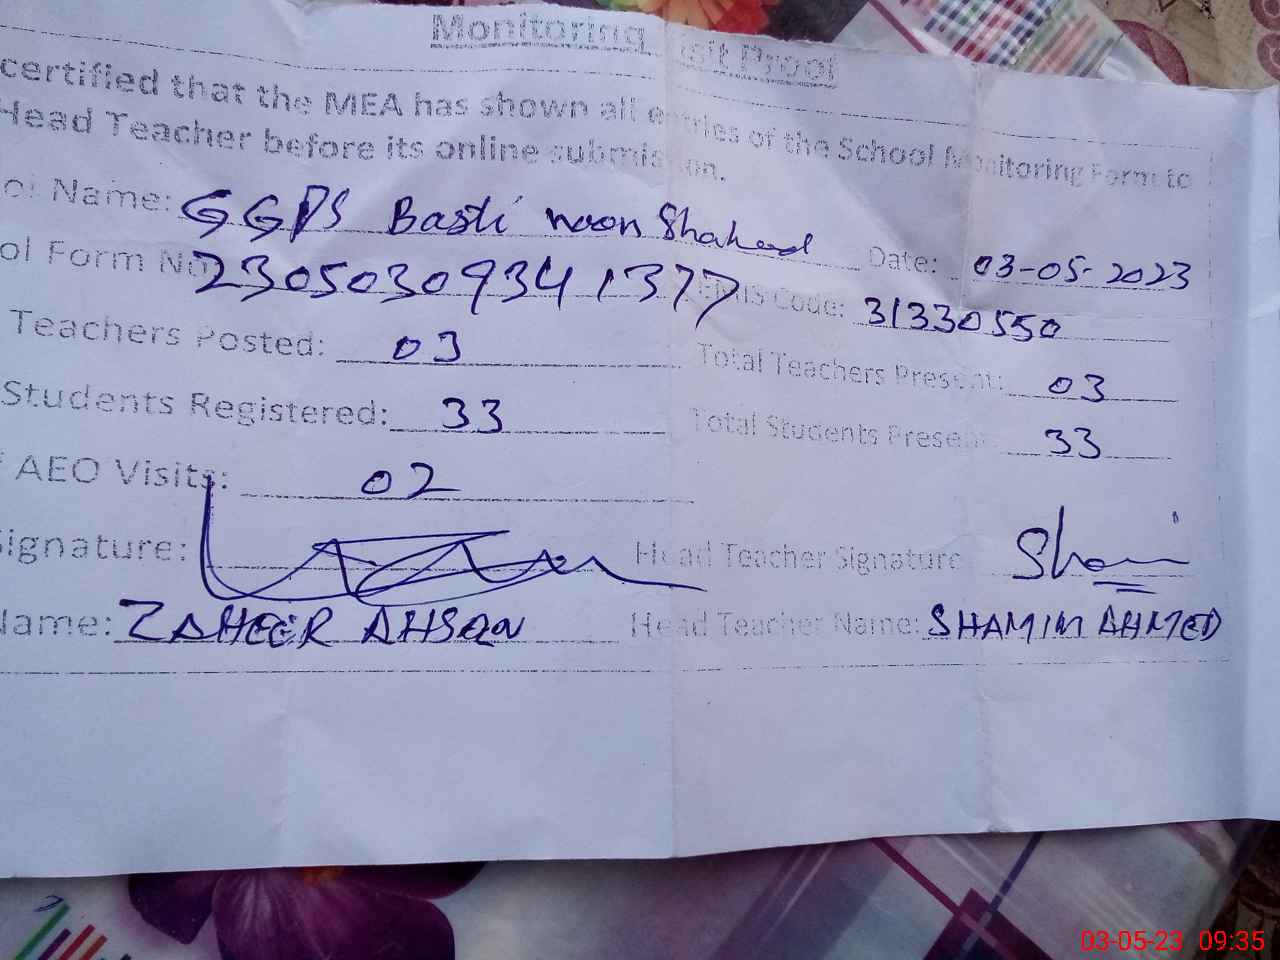 Monitoring Visit Proof
certified that the MEA has shown all entries of the School Monitoring Form to
Head Teacher before its online submission.
ol Name: GGPS Basti noon Shaheed Date: 03-05-2023
ol Form No 2305030934 1377 EMIS Code: 31330550
Teachers Posted: 03 Total Teachers Present: 03
Students Registered: 33 Total Students Present 33
AEO Visits: 02
Signature: Head Teacher Signature Sham
Name: ZAHEER AHSAN Head Teacher Name: SHAMIM AHMED
03-05-23 09:35